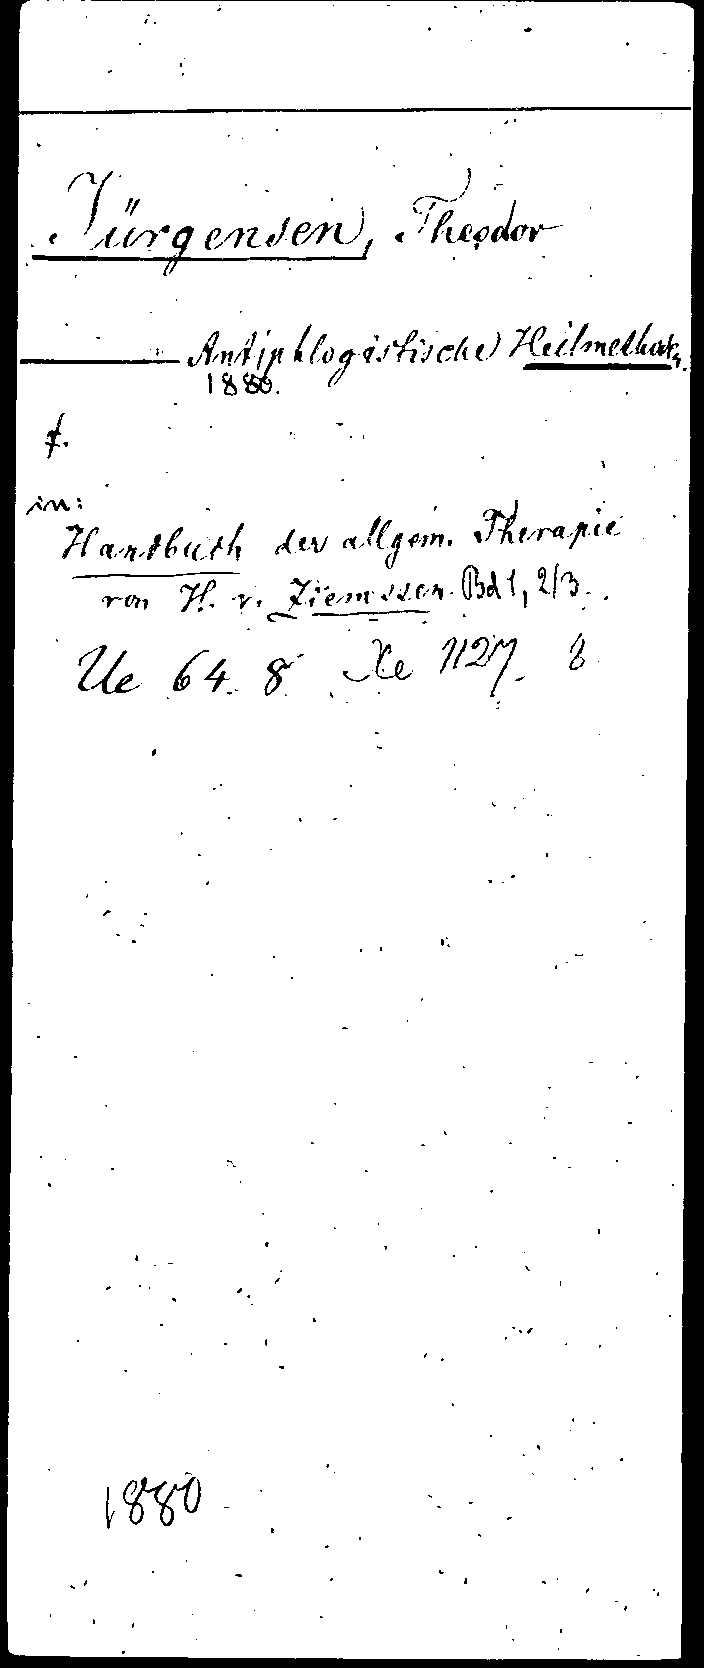 Jürgensen, Theodor
Antiphlogistische Heilmethoden.
1880.
f.
in:
Handbuch der allgem. Therapie
von H. v. Ziemssen. Bd 1, 2/3.
Ue 64. 8 Xe 1127. 8
1880